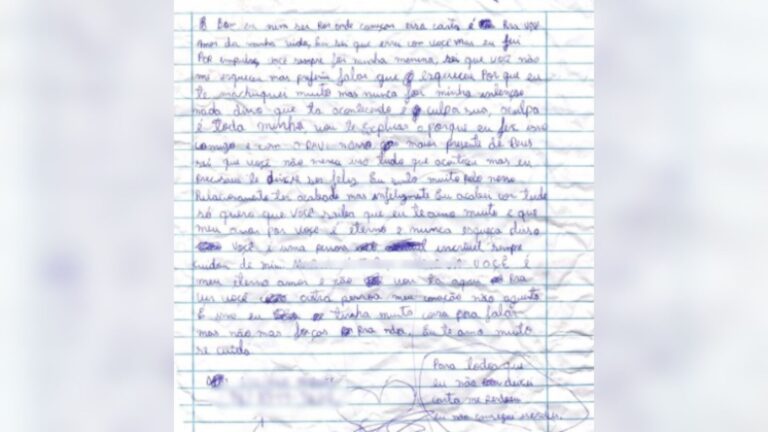 Bom eu nim sei por onde começar essa carta é Pra voçe
amor da minha vida, Eu sei que errei com você mas eu fui
Por impulso, você sempre foi minha menina, sei que você não
mi esqueceu mas prefiriu falar que esqueceu Por que eu
te machuquei muito mas nunca foi minha intenção
nada disso que ta acontecendo é culpa sua, a culpa
é toda minha vou te explicar o porque eu fiz isso
comigo e com o DAVI nosso maior presente de Deus
sei que você não merecia tudo que aconteceu mas eu
Precisava te deixar ser feliz Eu sinto muito pelo nosso
Relacionamento ter acabado mas infelizmente Eu acabei com tudo
só quero que você saiba que eu te amo muito e que
meu amor por você é eterno e nunca esqueça disso
você é uma pessoa incrivel sempre
cuidou de mim você é
meu eterno amor e não vou ta aqui Pra
ver você outra pessoa meu coração não aguenta
E isso eu tinha muito coisa pra falar
mas não mas forças Pra nda. Eu te amo muito
se cuida
Para todos que
eu não deixei
carta me Perdoem
eu não consegui escrever.